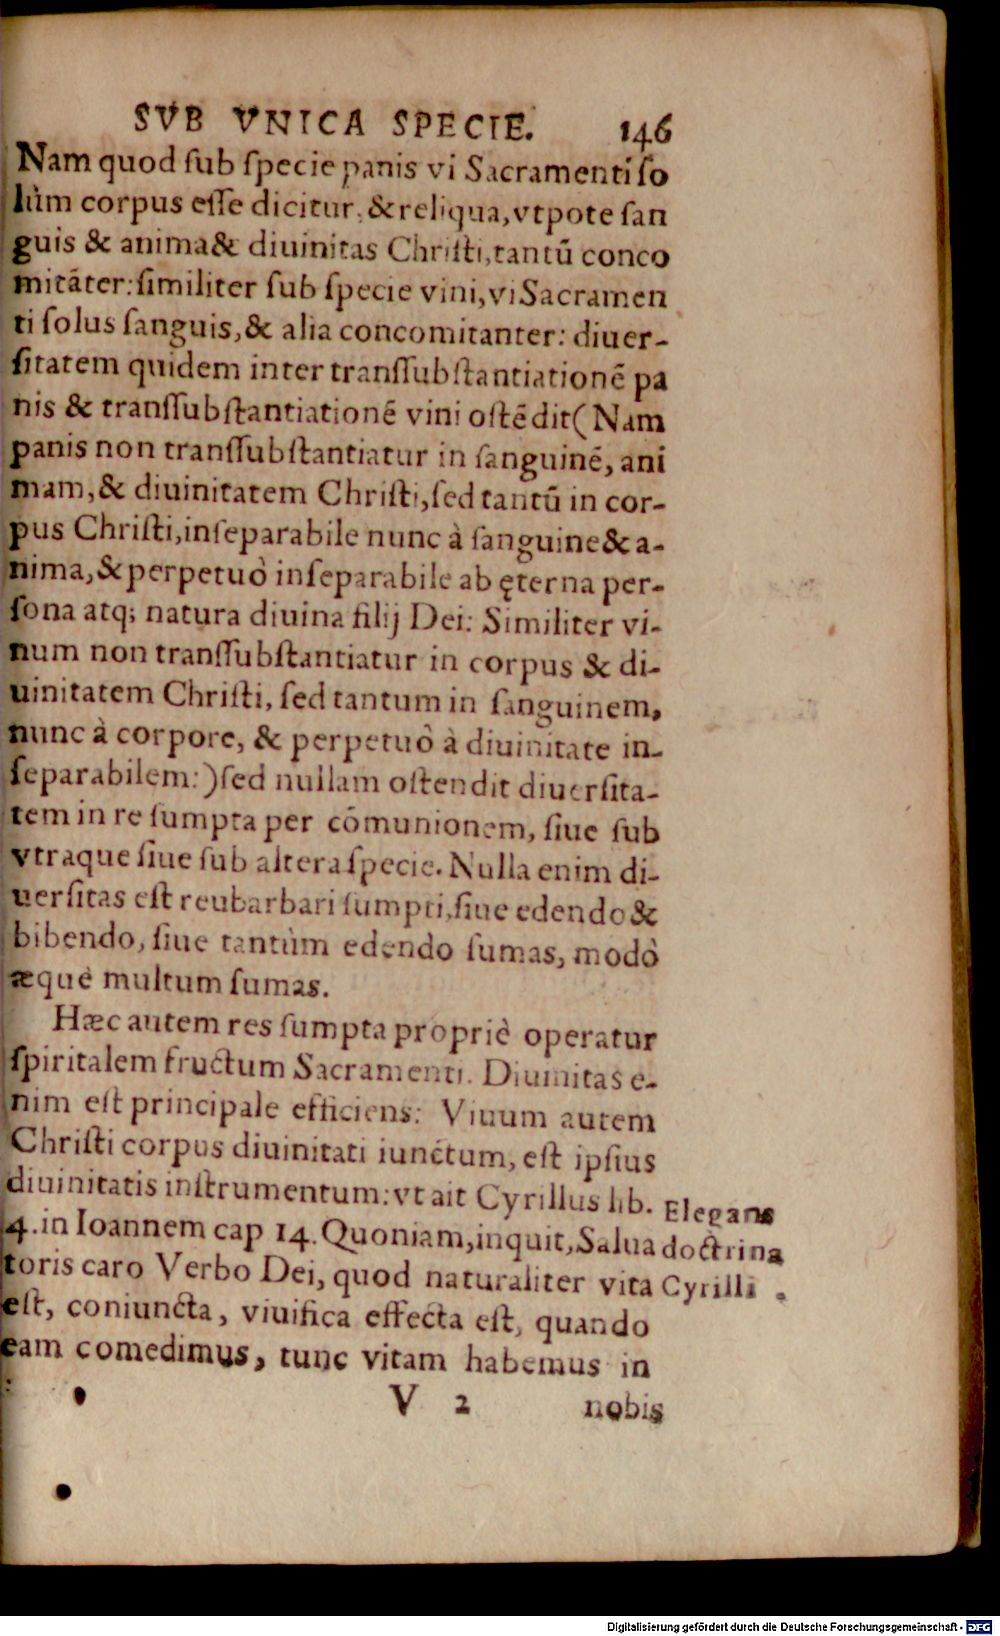 SVB VNICA SPECIE. 146
Nam quod ſub ſpecie panis vi Sacramenti ſo
lùm corpus eſſe dicitur, & reliqua, vtpote ſan
guis & anima & diuinitas Chriſti, tantũ conco
mitãter: ſimiliter ſub ſpecie vini, vi Sacramen
ti ſolus ſanguis, & alia concomitanter: diuer-
ſitatem quidem inter tranſſubſtantiationẽ pa
nis & tranſſubſtantiationẽ vini oſtẽdit (Nam
panis non tranſſubſtantiatur in ſanguinẽ, ani
mam, & diuinitatem Chriſti, ſed tantũ in cor-
pus Chriſti, inſeparabile nunc à ſanguine & a-
nima, & perpetuò inſeparabile ab ęterna per-
ſona atq; natura diuina filij Dei: Similiter vi-
num non tranſſubſtantiatur in corpus & di-
uinitatem Chriſti, ſed tantum in ſanguinem,
nunc à corpore, & perpetuò à diuinitate in-
ſeparabilem:) ſed nullam oſtendit diuerſita-
tem in re ſumpta per cõmunionem, ſiue ſub
vtraque ſiue ſub altera ſpecie. Nulla enim di-
uerſitas eſt reubarbari ſumpti, ſiue edendo &
bibendo, ſiue tantùm edendo ſumas, modò
æquè multum ſumas.
Hæc autem res ſumpta propriè operatur
ſpiritalem fructum Sacramenti. Diuinitas e-
nim eſt principale efficiens: Viuum autem
Chriſti corpus diuinitati iunctum, eſt ipſius
diuinitatis inſtrumentum: vt ait Cyrillus lib.
4. in Ioannem cap 14. Quoniam, inquit, Salua
toris caro Verbo Dei, quod naturaliter vita
eſt, coniuncta, viuifica effecta eſt, quando
eam comedimus, tunc vitam habemus in
Elegans
doctrina
Cyrilli.
V 2 nobis
Digitalisierung gefördert durch die Deutsche Forschungsgemeinschaft - DFG